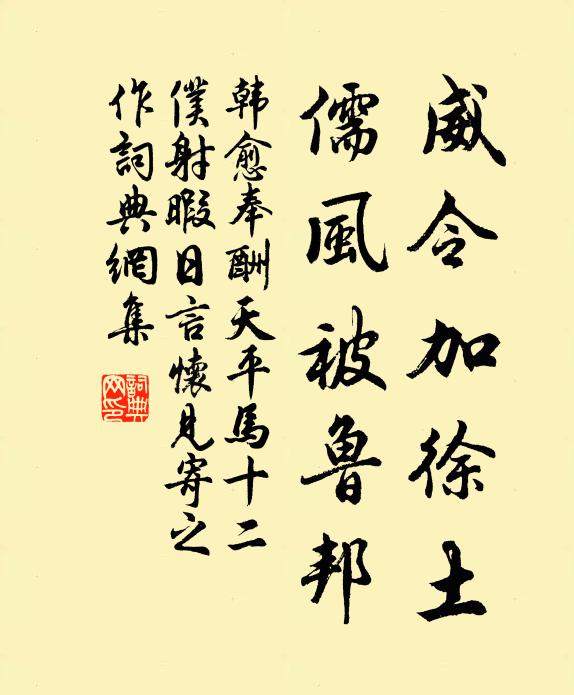 威令加徐土
儒風被魯邦
韩愈奉酬天平馬十二
僕射暇日言懷見寄之
作詞典網集
詞典网印